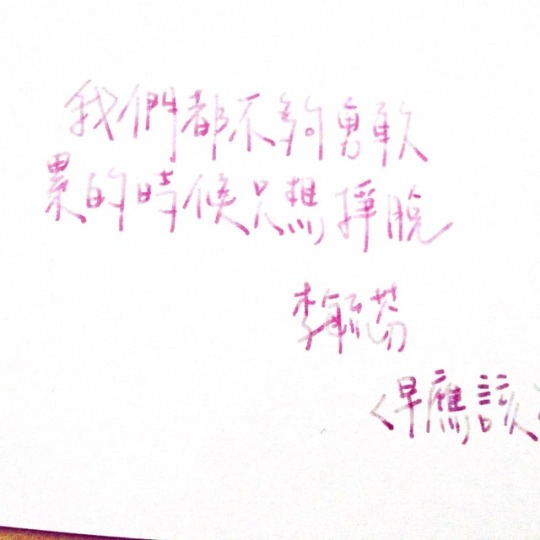 我們都不夠勇敢
累的時候只想掙脫
李毓芬
〈早應該